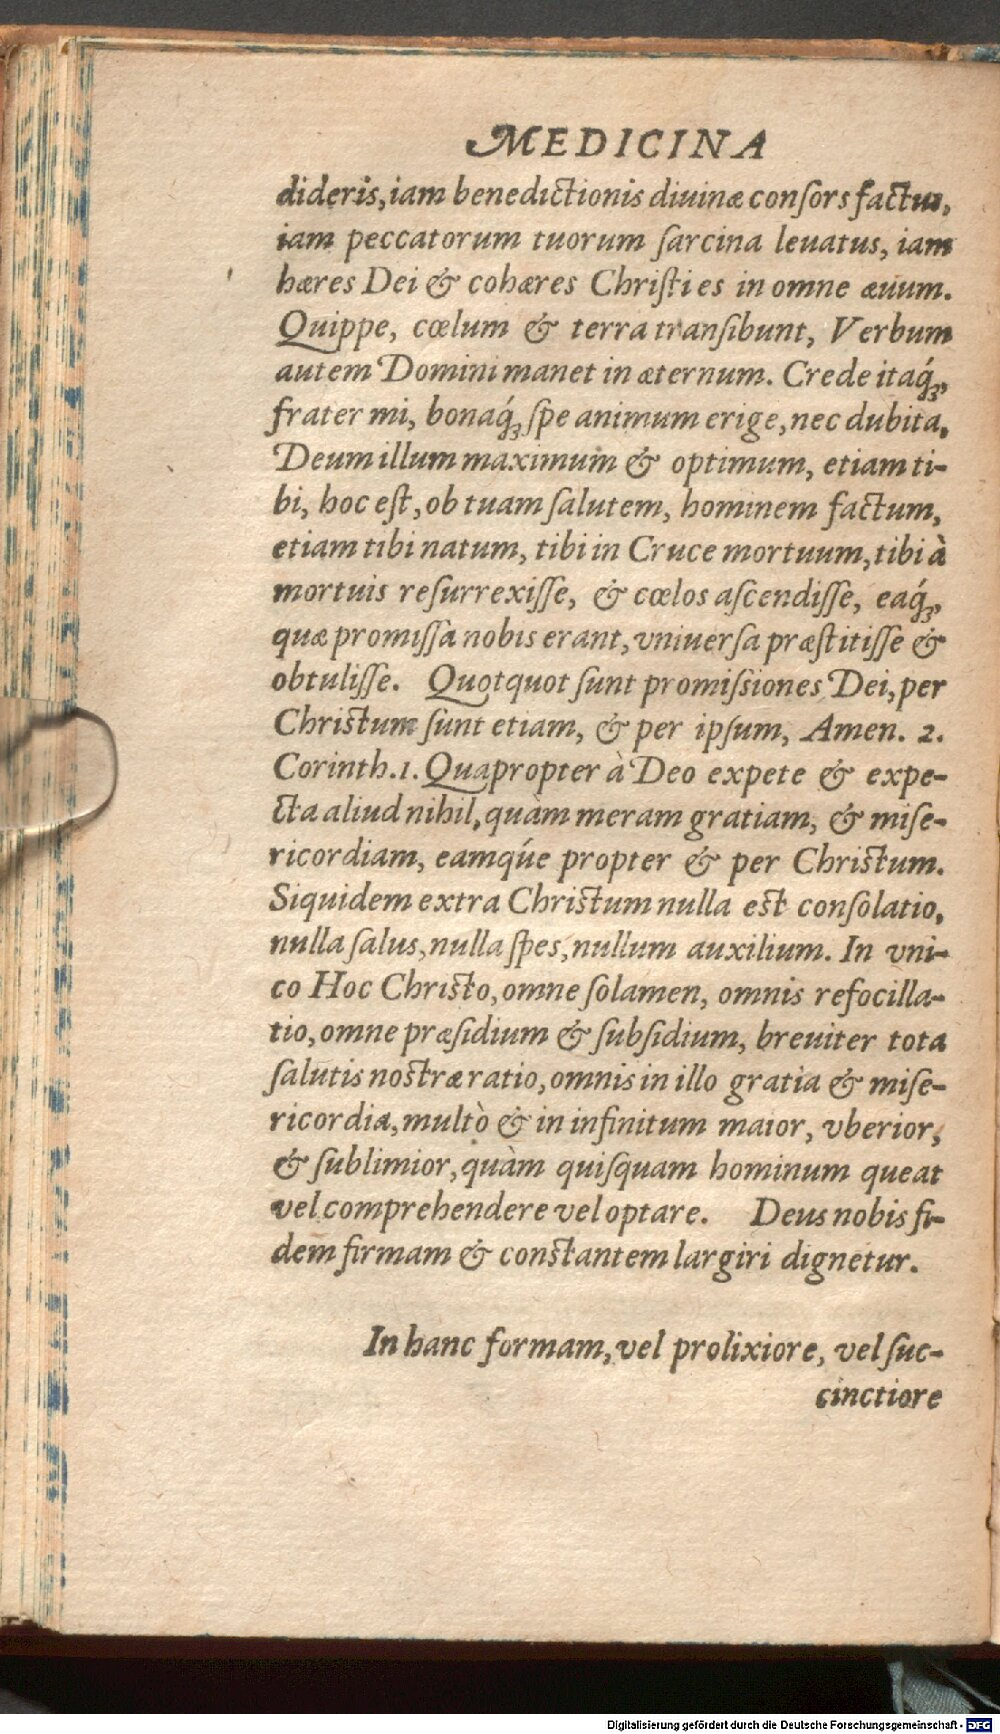 MEDICINA
dideris, iam benedictionis diuinæ conſors factus,
iam peccatorum tuorum ſarcina leuatus, iam
hæres Dei & cohæres Chriſti es in omne æuum.
Quippe, cœlum & terra tranſibunt, Verbum
autem Domini manet in æternum. Crede itaq́ꝫ,
frater mi, bonaq́ꝫ ſpe animum erige, nec dubita,
Deum illum maximum & optimum, etiam ti-
bi, hoc eſt, ob tuam ſalutem, hominem factum,
etiam tibi natum, tibi in Cruce mortuum, tibi à
mortuis reſurrexiſſe, & cœlos aſcendiſſe, eaq́ꝫ,
quæ promiſſa nobis erant, vniuerſa præſtitiſſe &
obtuliſſe. Quotquot ſunt promiſsiones Dei, per
Chriſtum ſunt etiam, & per ipſum, Amen. 2.
Corinth. 1. Quapropter à Deo expete & expe-
cta aliud nihil, quàm meram gratiam, & miſe-
ricordiam, eamq́ue propter & per Chriſtum.
Siquidem extra Chriſtum nulla eſt conſolatio,
nulla ſalus, nulla ſpes, nullum auxilium. In vni-
co Hoc Chriſto, omne ſolamen, omnis refocilla-
tio, omne præſidium & ſubſidium, breuiter tota
ſalutis noſtræ ratio, omnis in illo gratia & miſe-
ricordia, multò & in infinitum maior, vberior,
& ſublimior, quàm quiſquam hominum queat
vel comprehendere vel optare. Deus nobis fi-
dem firmam & conſtantem largiri dignetur.
In hanc formam, vel prolixiore, vel ſuc-
cinctiore
Digitalisierung gefördert durch die Deutsche Forschungsgemeinschaft - DFG